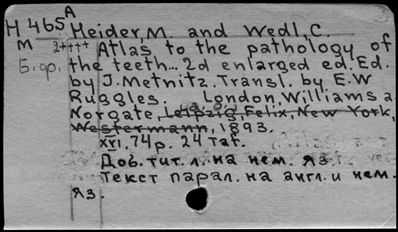 H 465 A Heider, M. and Wedl, C.
M 2++++ Atlas to the pathology of
Б.ф. the teeth... 2d enlarged ed. Ed.
by J. Metnitz. Transl. by E.W
Ruggles. London, Williams a.
Norgate, Leipzig, Felix, New York,
Westermann, 1893.
XVI, 74 p. 24 Taf.
Доб. тит. л. на нем. яз.
Текст парал. на англ. и нем.
яз.